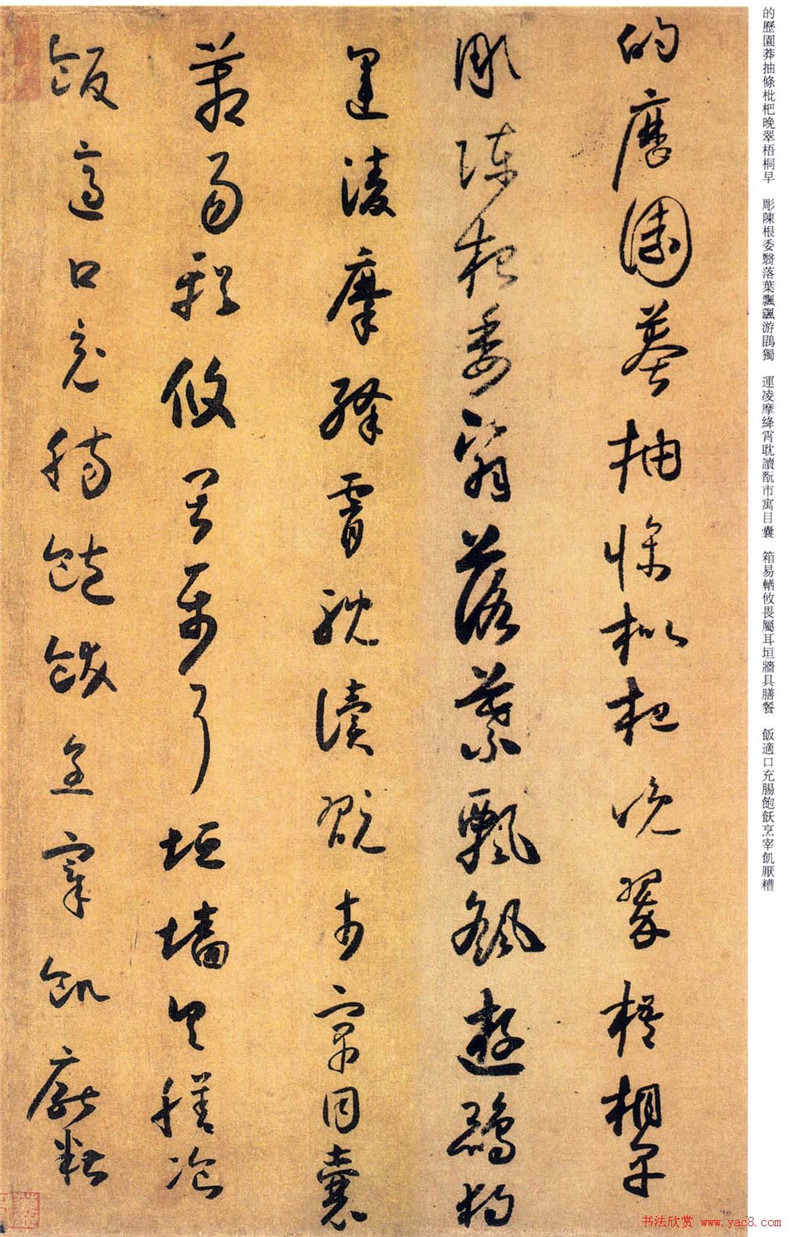 的歷園莽抽條枇杷晚翠梧桐早
彫陳根委翳落葉飄颻游鵾獨
運凌摩絳霄耽讀翫市寓目囊
箱易輶攸畏屬耳垣牆具膳飡
飯適口充腸飽飫烹宰飢厭糟
的歷園莽抽條枇杷晚翠梧桐早　彫陳根委翳落葉飄颻游鵾獨　運凌摩絳霄耽讀翫市寓目囊　箱易輶攸畏屬耳垣牆具膳餐　飯適口充腸飽飫烹宰飢厭糟
书法欣赏 www.yac8.com